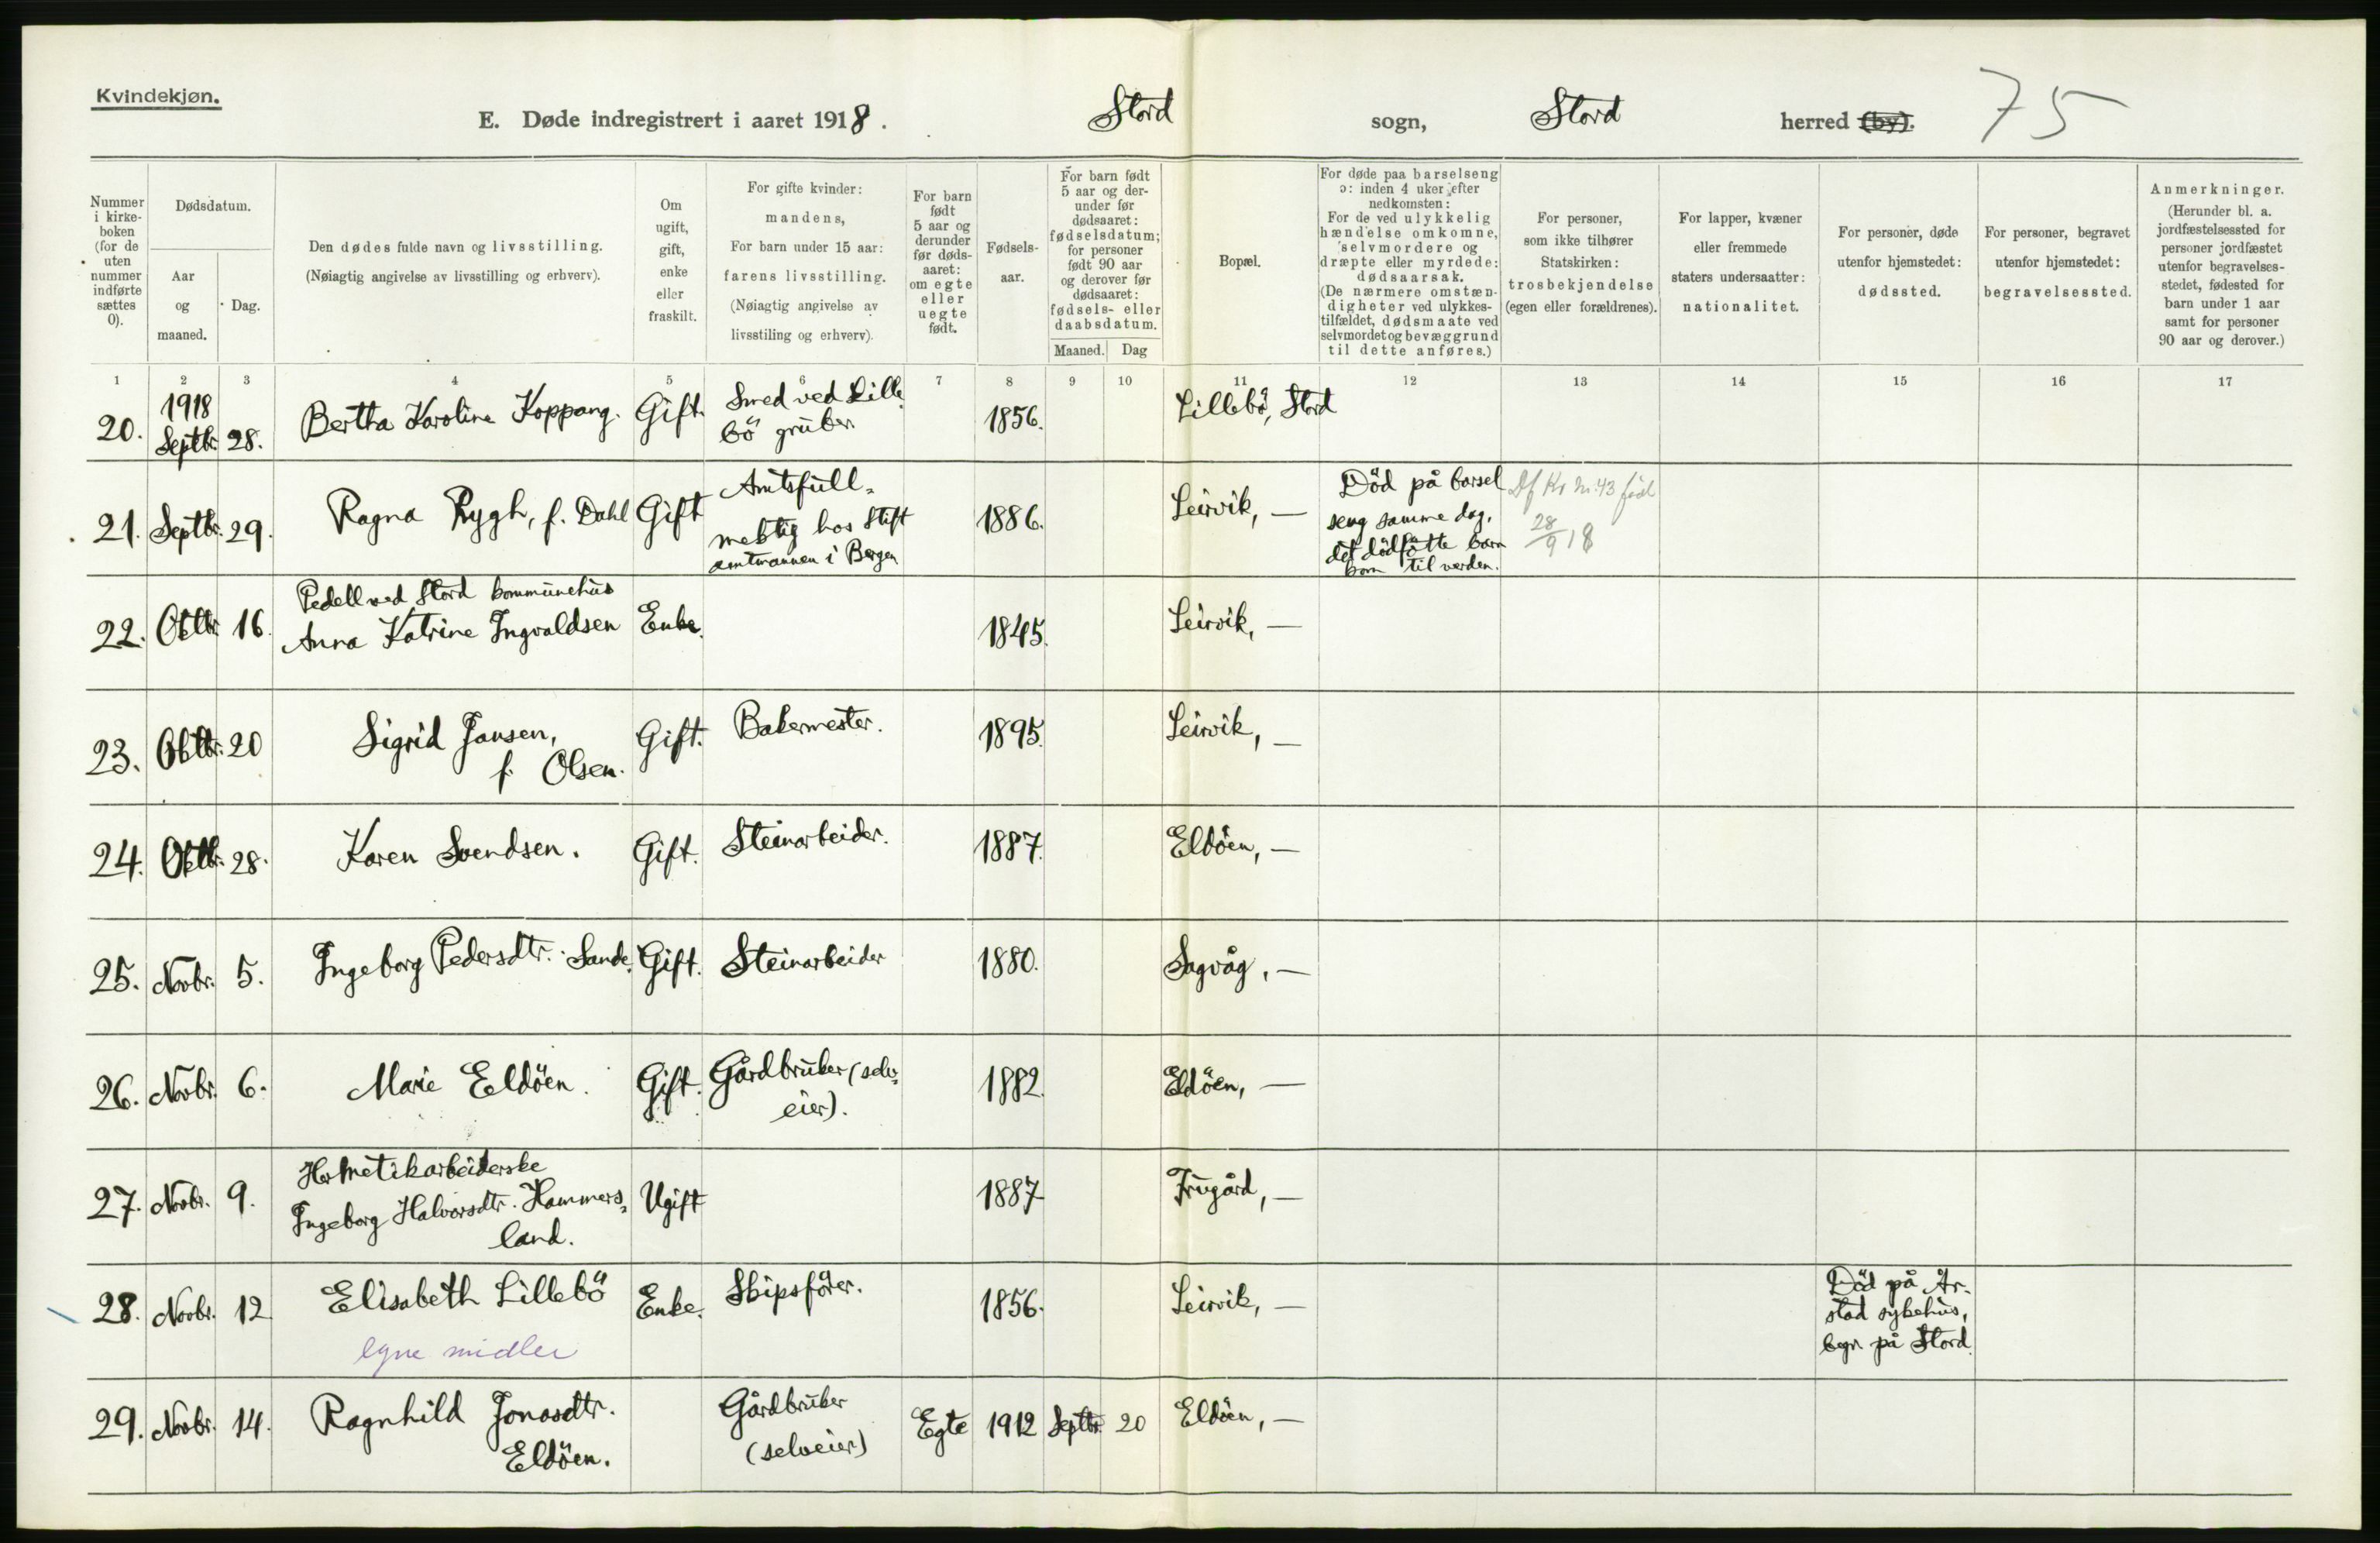 Kvindekjøn.
E. Døde indregistrert i aaret 1918. Stord sogn, Stord herred (by). 75
Nummer i kirkeboken (for de uten nummer indførte sættes 0).
Dødsdatum.
Aar og maaned.
Dag.
Den dødes fulde navn og livsstilling.
(Nøiagtig angivelse av livsstilling og erhverv).
Om ugift, gift, enke eller fraskilt.
For gifte kvinder:
mandens,
For barn under 15 aar:
farens livsstilling.
(Nøiagtig angivelse av
livsstiling og erhverv).
For barn født 5 aar og derunder før dødsaaret: om egte eller uegte født.
Fødselsaar.
For barn født 5 aar og derunder før dødsaaret: fødselsdatum; for personer født 90 aar og derover før dødsaaret: fødsels- eller daabsdatum.
Maaned. Dag
Bopæl.
For døde paa barselseng ɔ: inden 4 uker efter nedkomsten:
For de ved ulykkelig hændelse omkomne, selvmordere og dræpte eller myrdede: dødsaarsak.
(De nærmere omstændigheter ved ulykkestilfældet, dødsmaate ved selvmordet og bevæggrund til dette anføres.)
For personer, som ikke tilhører Statskirken: trosbekjendelse (egen eller forældrenes).
For lapper, kvæner eller fremmede staters undersaatter: nationalitet.
For personer, døde utenfor hjemstedet: dødssted.
For personer, begravet utenfor hjemstedet: begravelsessted.
Anmerkninger.
(Herunder bl. a. jordfæstelsessted for personer jordfæstet utenfor begravelsesstedet, fødested for barn under 1 aar samt for personer 90 aar og derover.)
1 2 3 4 5 6 7 8 9 10 11 12 13 14 15 16 17
20. 1918 Septbr. 28. Bertha Karoline Koppang. Gift. Smed ved Lillebö gruber. 1856. Lillebö, Stord
21. Septbr. 29. Ragna Rygh, f. Dahl Gift Amtsfullmektig hos Stiftamtmannen i Bergen 1886. Leirvik, — Död på barselseng samme dag, det dödfötte barn kom til verden. 28/9 18
22. Oktbr. 16. Pedell ved Stord kommunehus
Anna Katrine Ingvaldsen Enke. 1845. Leirvik, —
23. Oktbr. 20 Sigrid Jansen, f. Olsen. Gift. Bakermester. 1895. Leirvik, —
24. Oktbr. 28. Karen Svendsen. Gift. Steinarbeider. 1887. Eldöen, —
25. Novbr. 5. Ingeborg Pedersdtr. Sande. Gift. Steinarbeider 1880. Sagvåg, —
26. Novbr. 6. Marie Eldöen. Gift. Gårdbruker (selveier). 1882. Eldöen, —
27. Novbr. 9. Hermetikarbeiderske
Ingeborg Halvorsdtr. Hammersland. Ugift 1887 Frugård, —
28. Novbr. 12 Elisabeth Lillebö Enke. Skipsförer. 1856. Leirvik, — Död på Årstad sykehus, begr. på Stord.
egne midler
29. Novbr. 14. Ragnhild Jonasdtr. Eldöen. Gårdbruker (selveier) Egte 1912 Septbr. 20 Eldöen, —